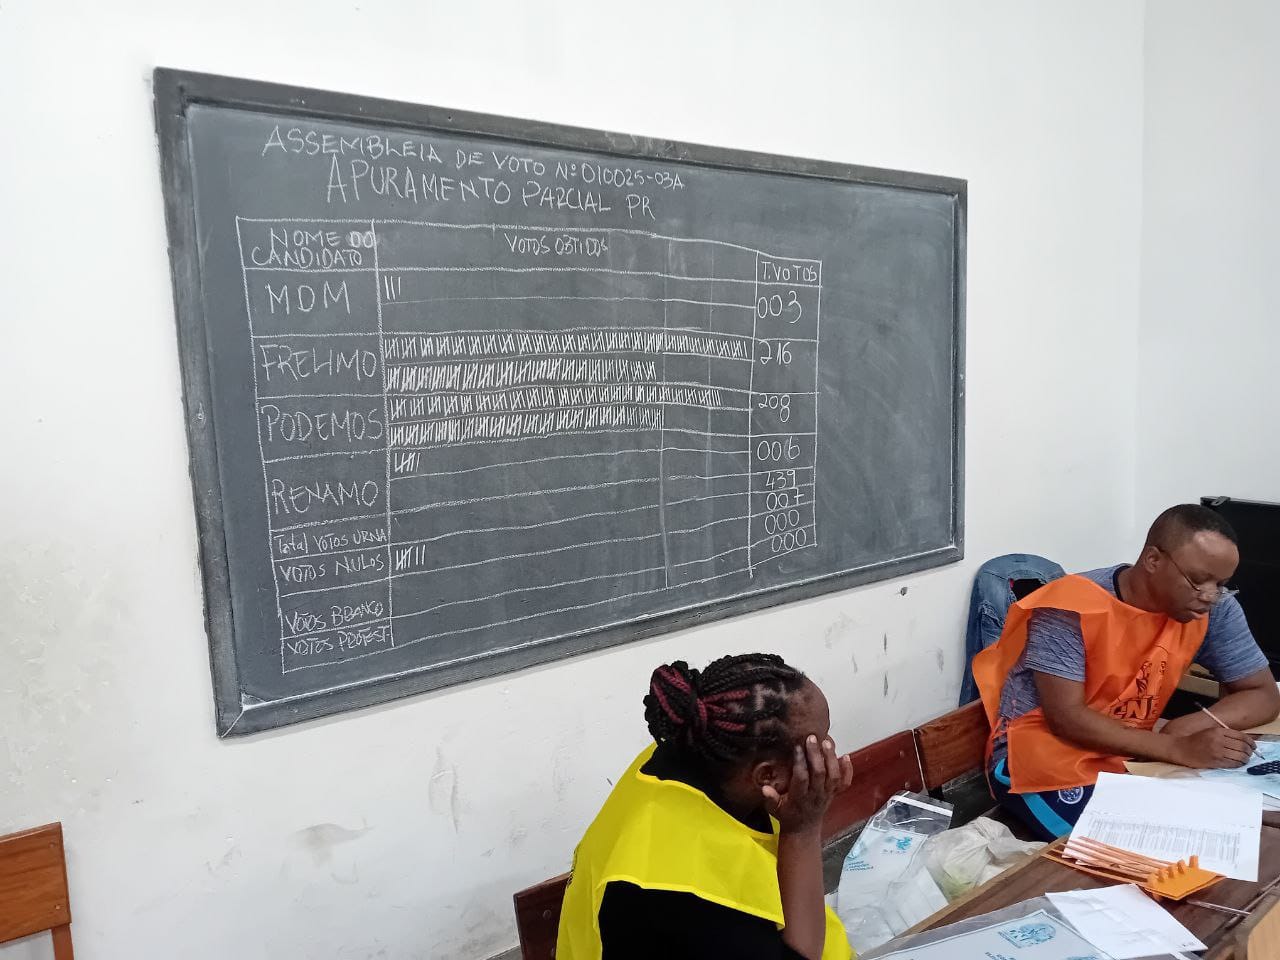 ASSEMBLEIA DE VOTO Nº 010025-03A
APURAMENTO PARCIAL PR
NOME DO CANDIDATO
VOTOS OBTIDOS
T.VOTOS
MDM
003
FRELIMO
216
PODEMOS
208
RENAMO
006
Total VOTOS URNA
439
VOTOS NULOS
007
VOTOS BRANCO
000
VOTOS PROTEST.
000